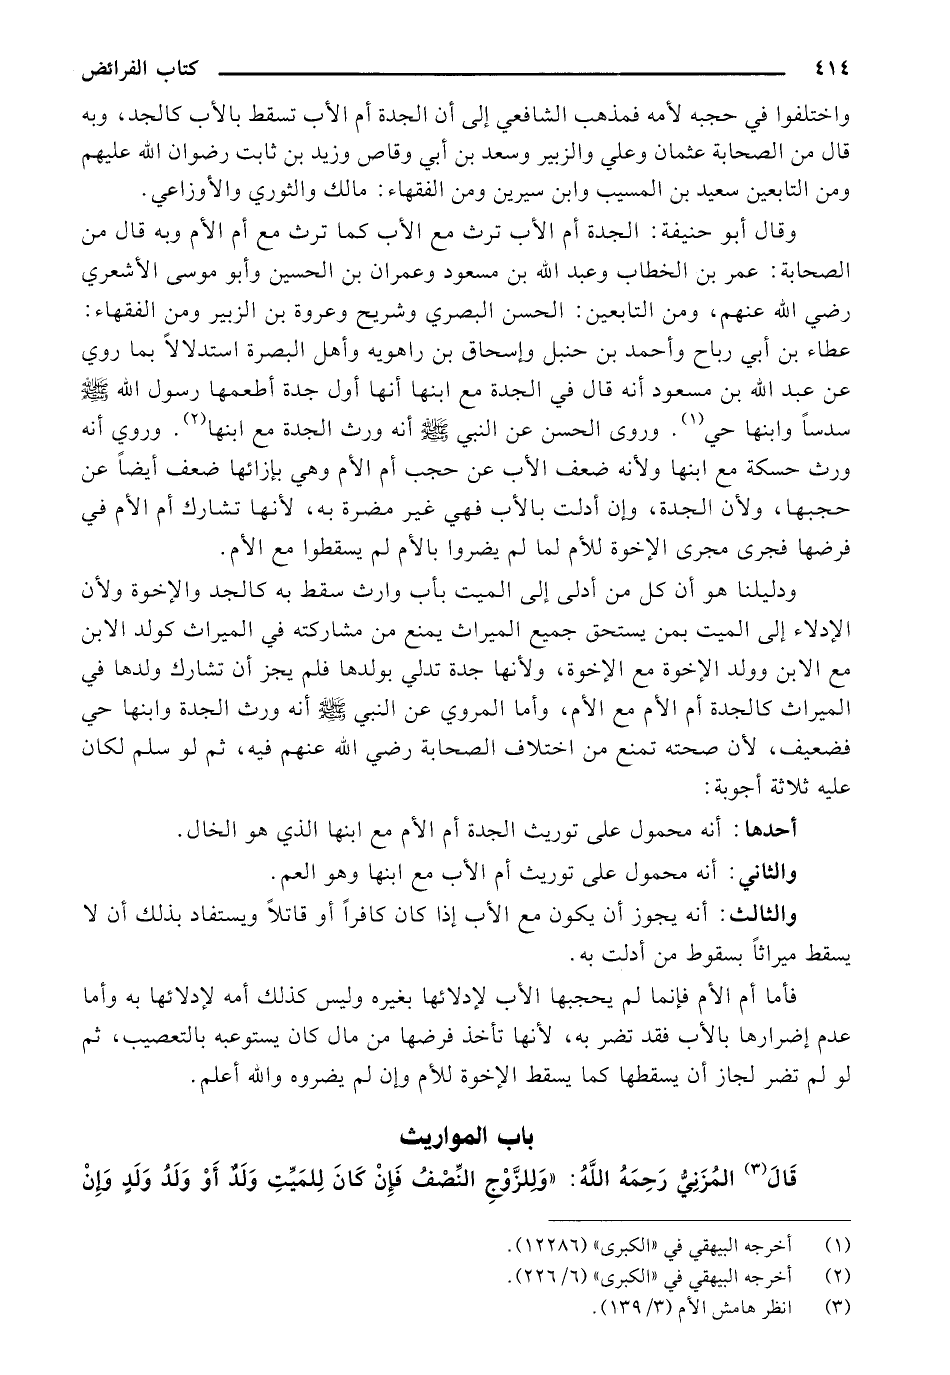 ٤١٤ كتاب الفرائض
واختلفوا في حجبه لأمه فمذهب الشافعي إلى أن الجدة أم الأب تسقط بالأب كالجد، وبه
قال من الصحابة عثمان وعلي والزبير وسعد بن أبي وقاص وزيد بن ثابت رضوان الله عليهم
ومن التابعين سعيد بن المسيب وابن سيرين ومن الفقهاء: مالك والثوري والأوزاعي.
وقال أبو حنيفة: الجدة أم الأب ترث مع الأب كما ترث مع أم الأم وبه قال من
الصحابة: عمر بن الخطاب وعبد الله بن مسعود وعمران بن الحسين وأبو موسى الأشعري
رضي الله عنهم، ومن التابعين: الحسن البصري وشريح وعروة بن الزبير ومن الفقهاء:
عطاء بن أبي رباح وأحمد بن حنبل وإسحاق بن راهويه وأهل البصرة استدلالاً بما روي
عن عبد الله بن مسعود أنه قال في الجدة مع ابنها أنها أول جدة أطعمها رسول الله ﷺ
سدساً وابنها حي(١). وروى الحسن عن النبي ﷺ أنه ورث الجدة مع ابنها(٢). وروي أنه
ورث حسكة مع ابنها ولأنه ضعف الأب عن حجب أم الأم وهي بإزائها ضعف أيضاً عن
حجبها، ولأن الجدة، وإن أدلت بالأب فهي غير مضرة به، لأنها تشارك أم الأم في
فرضها فجرى مجرى الإخوة للأم لما لم يضروا بالأم لم يسقطوا مع الأم.
ودليلنا هو أن كل من أدلى إلى الميت بأب وارث سقط به كالجد والإخوة ولأن
الإدلاء إلى الميت بمن يستحق جميع الميراث يمنع من مشاركته في الميراث كولد الابن
مع الابن وولد الإخوة مع الإخوة، ولأنها جدة تدلي بولدها فلم يجز أن تشارك ولدها في
الميراث كالجدة أم الأم مع الأم، وأما المروي عن النبي ﷺ أنه ورث الجدة وابنها حي
فضعيف، لأن صحته تمنع من اختلاف الصحابة رضي الله عنهم فيه، ثم لو سلم لكان
عليه ثلاثة أجوبة:
أحدها: أنه محمول على توريث الجدة أم الأم مع ابنها الذي هو الخال.
والثاني: أنه محمول على توريث أم الأب مع ابنها وهو العم.
والثالث: أنه يجوز أن يكون مع الأب إذا كان كافراً أو قاتلاً ويستفاد بذلك أن لا
يسقط ميراثاً بسقوط من أدلت به.
فأما أم الأم فإنما لم يحجبها الأب لإدلائها بغيره وليس كذلك أمه لإدلائها به وأما
عدم إضرارها بالأب فقد تضر به، لأنها تأخذ فرضها من مال كان يستوعبه بالتعصيب، ثم
لو لم تضر لجاز أن يسقطها كما يسقط الإخوة للأم وإن لم يضروه والله أعلم.
باب المواريث
قَالَ(٣) المُزَنِيُّ رَحِمَهُ اللَّهُ: «وَلِلزَّوْجِ النِّصْفُ فَإِنْ كَانَ لِلمَيِّتِ وَلَدٌ أَوْ وَلَدُ وَلَدٍ وَإِنْ
(١) أخرجه البيهقي في «الكبرى» (١٢٢٨٦).
(٢) أخرجه البيهقي في «الكبرى» (٢٢٦/٦).
(٣) انظر هامش الأم (١٣٩/٣).